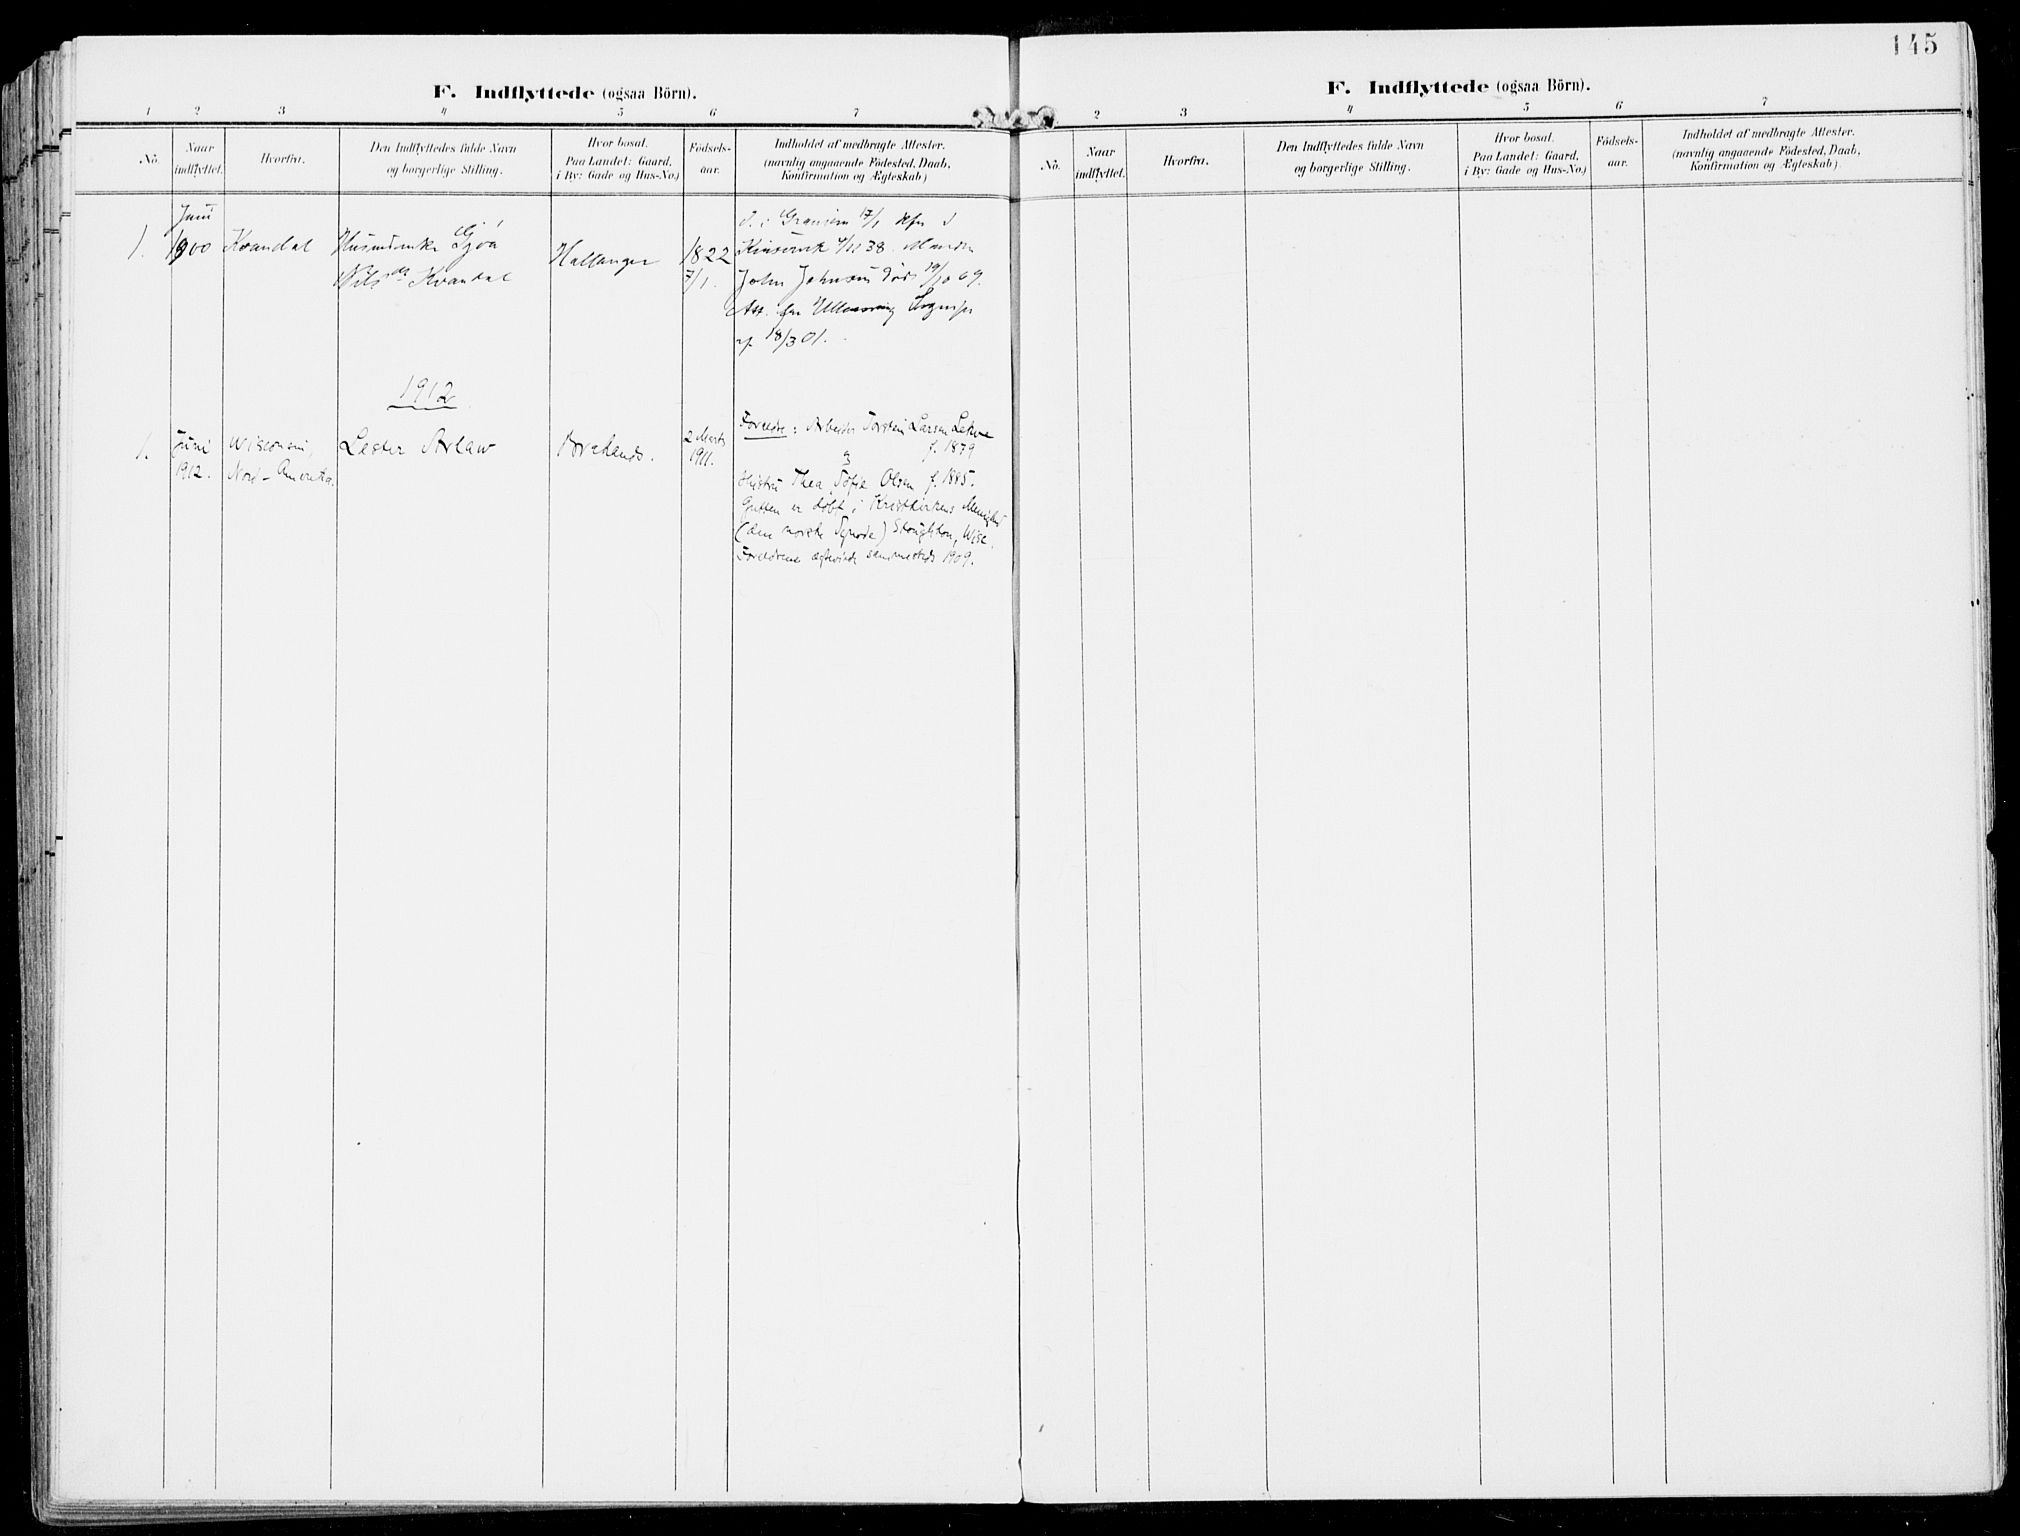 145
F. Indflyttede (ogsaa Börn).
1 2 3 4 5 6 7
No.
Naar indflyttet.
Hvorfra.
Den Indflyttedes fulde Navn
og borgerlige Stilling.
Hvor bosat.
Paa Landet: Gaard,
i By: Gade og Hus-No.)
Födsels-
aar.
Indholdet af medbragte Attester.
(navnlig angaaende Födested, Daab,
Konfirmation og Ægteskab)
Juni
1. 1900 Kvandal
Gjøa
Nils Kvandal
Hallanger
1822
7/1.
Kinservik 38. Manden
John Johnsen død 19/10 69.
Att. fra
18/3 01.
1912
1. Juni
1912.
Wisconsin,
Nord-Amerika.
Lester Arlaw
2 Marts
1911.
Forældre: Arbeider Torstein Larsen Lekve
f. 1879
&
Hustru Thea Sofie Olsen f. 1885.
Gutten er døbt i Kristkirkens Menighed
(den norske Synode) Stoughton, Wisc.
Forældrene ægteviede sammesteds 1909.
F. Indflyttede (ogsaa Börn).
2 3 4 5 6 7
No.
Naar
indflyttet.
Hvorfra.
Den Indflyttedes fulde Navn
og borgerlige Stilling.
Hvor bosat.
Paa Landet: Gaard,
i By: Gade og Hus-No.)
Födsels-
aar.
Indholdet af medbragte Attester.
(navnlig angaaende Födested, Daab,
Konfirmation og Ægteskab)